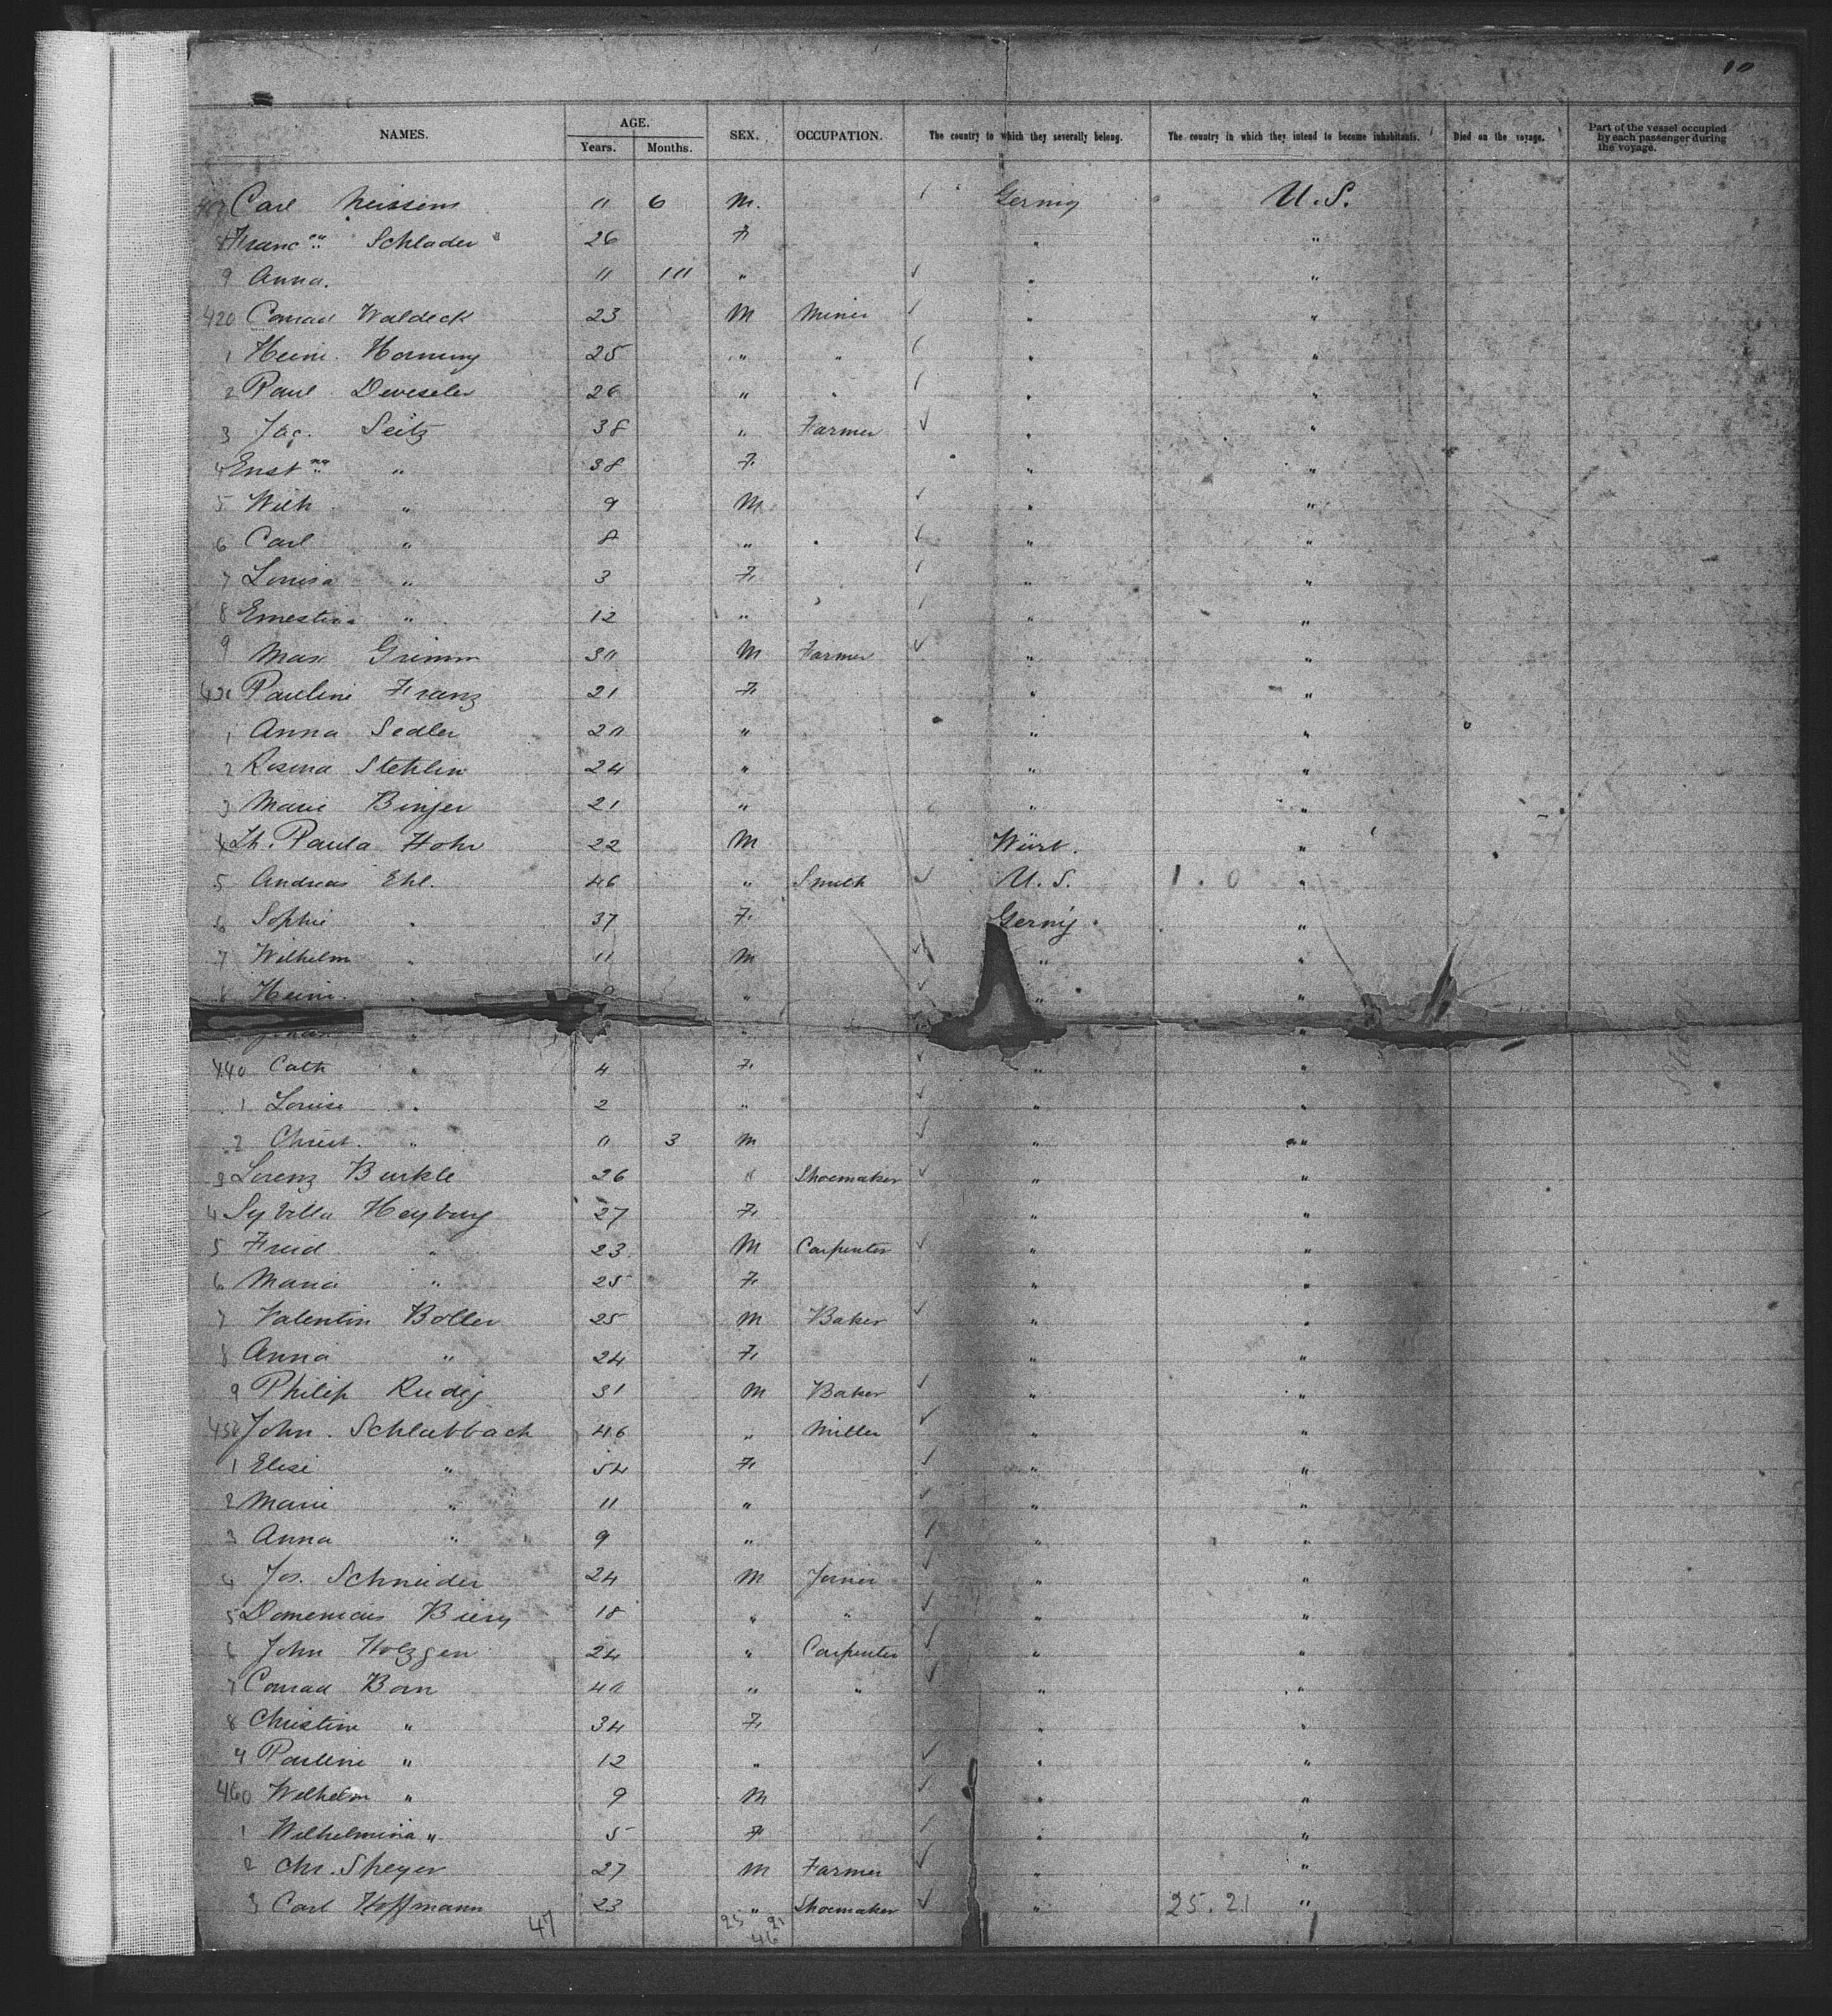 10
NAMES. AGE. Years. Months. SEX. OCCUPATION. The country to which they severally belong. The country in which they intend to become inhabitants. Died on the voyage. Part of the vessel occupied by each passenger during the voyage.
Carl " 6 M. Germy U.S.
Schlader 26 F " "
9 Anna. " " " "
420 Conrad Waldeck 23 M Miner " "
1 Heinr. Hornung 25 " " " "
2 Paul 26 " " " "
3 Jac. Seitz 38 " Farmer " "
4 " 38 F. " "
5 Wilh " 9 M " "
6 Carl " 8 " " "
7 Louisa " 3 F. " "
8 Ernestina " 12 " " "
9 Max Grimm 30 M Farmer " "
Pauline Franz 21 F. " "
1 Anna Sedler 20 " " "
2 Rosina Stehlin 24 " " "
3 Marie Binjer 21 " " "
4 Paula Hohr 22 M Würt. "
5 Andreas Ehl. 46 " Smith U.S. 1.0 "
6 Sophie " 37 F. Germy "
7 Wilhelm " 11 M " "
8 Heinr. " " " "
" " "
440 Cath " 4 F. " "
1 Louise " 2 " " "
2 Christ. " " 3 M " "
3 Lorenz Burkle 26 " Shoemaker " "
4 Sybilla Heyburg 27 F. " "
5 Fried " 23 M Carpenter " "
6 Maria " 25 F. " "
7 Valentin Boller 25 M Baker " "
8 Anna " 24 F. " "
9 Philip Rudig 31 M Baker " "
450 John. Schlabbach 46 " Miller " "
1 Elise " 54 F. " "
2 Marie " 11 " " "
3 Anna " 9 " " "
4 Jos. Schneider 24 M Joiner " "
5 Domenicus 18 " " " "
6 John Holzgen 24 " Carpenter " "
7 Conrad Born 40 " " " "
8 Christine " 34 F. " "
9 Pauline " 12 " " "
460 Wilhelm " 9 M " "
1 Wilhelmina " 5 F " "
2 Chr. Speyer 27 M Farmer " "
3 Carl Hoffmann 23 " Shoemaker " 25.21 "
47 25 21
46